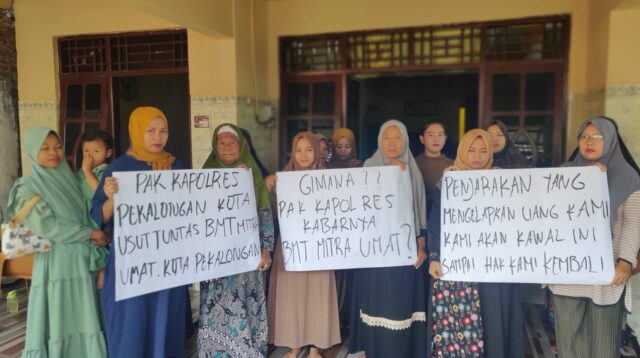 PAK KAPOLRES
PEKALONGAN KOTA
USUT TUNTAS BMT MITRA
UMAT. KOTA PEKALONGAN
GIMANA ??
PAK KAPOLRES
KABARNYA
BMT MITRA UMAT ?
PENJARAKAN YANG
MENGELAPKAN UANG KAMI
KAMI AKAN KAWAL INI
SAMPAI HAK KAMI KEMBALI